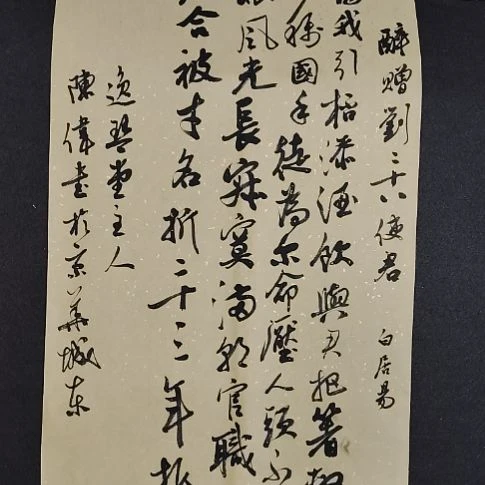 醉贈劉二十八使君 白居易
為我引杯添酒飲與君把箸擊
稱國手徒為尔命壓人頭不
眼風光長寂寞滿朝官職
合被才名折二十三年折
逸琴堂主人
陳偉書於京華城東